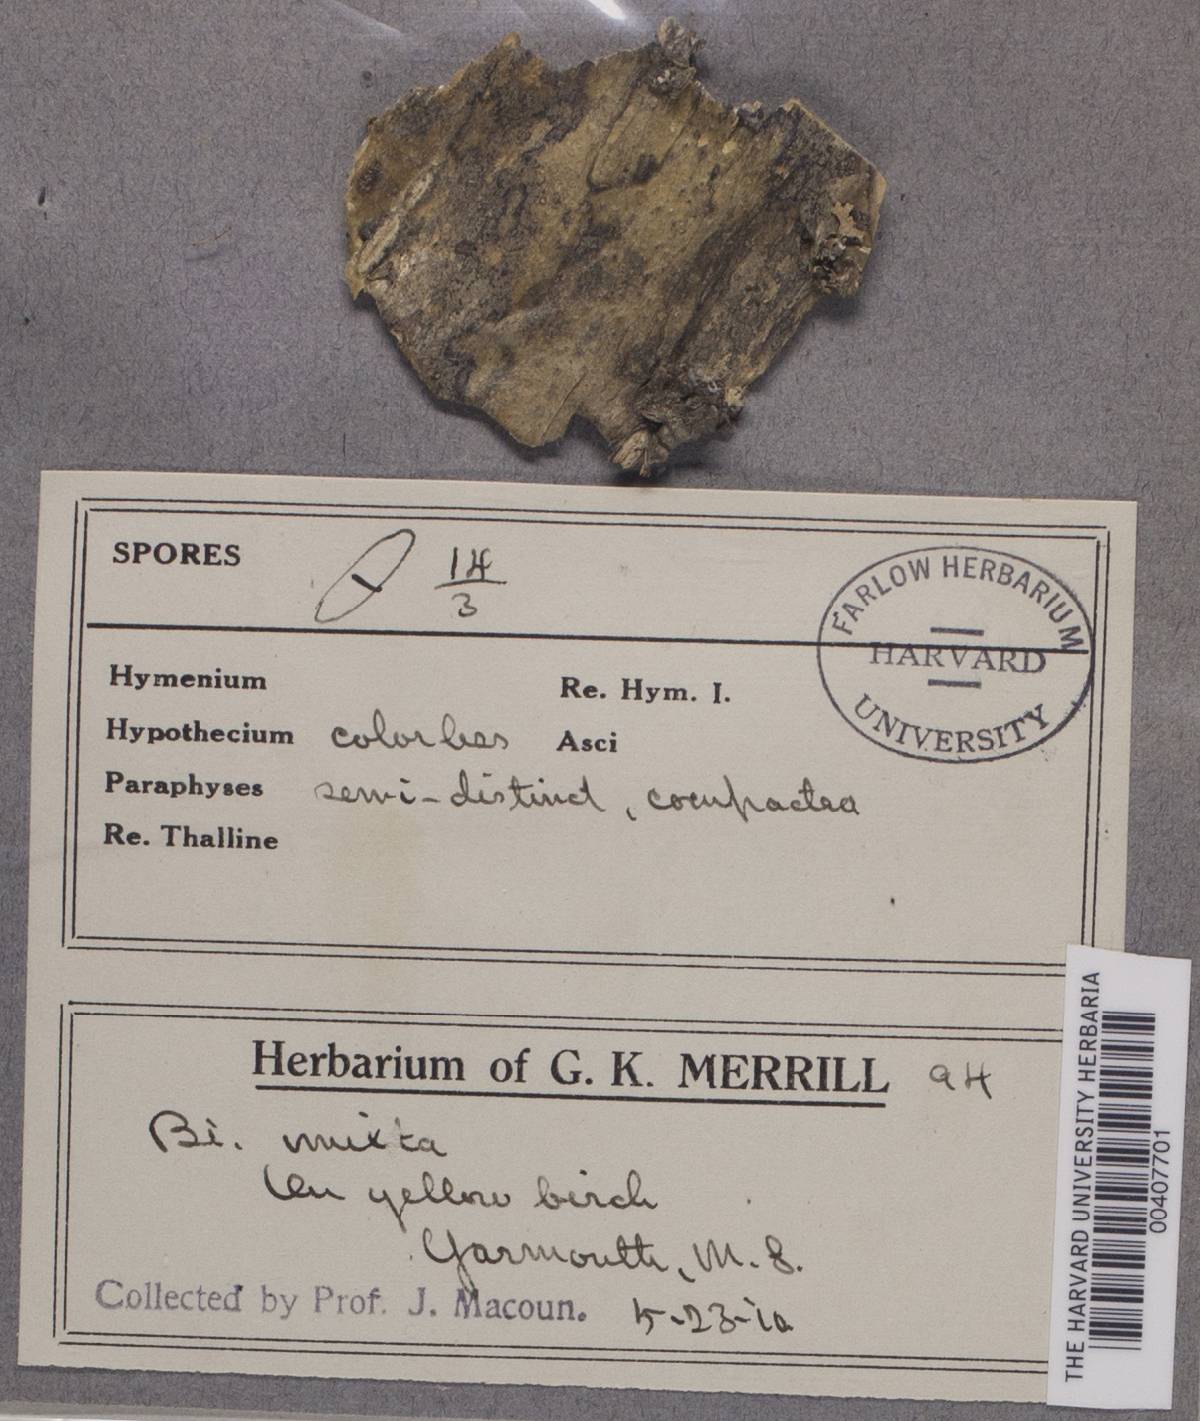 SPORES 14/3
FARLOW HERBARIUM
HARVARD
UNIVERSITY
Hymenium Re. Hym. I.
Hypothecium colorless Asci
Paraphyses semi-distinct, compacted
Re. Thalline
Herbarium of G. K. MERRILL 94
Bi. mixta
On yellow birch
Yarmouth, N. S.
Collected by Prof. J. Macoun. 5-23-10
THE HARVARD UNIVERSITY HERBARIA
00407701